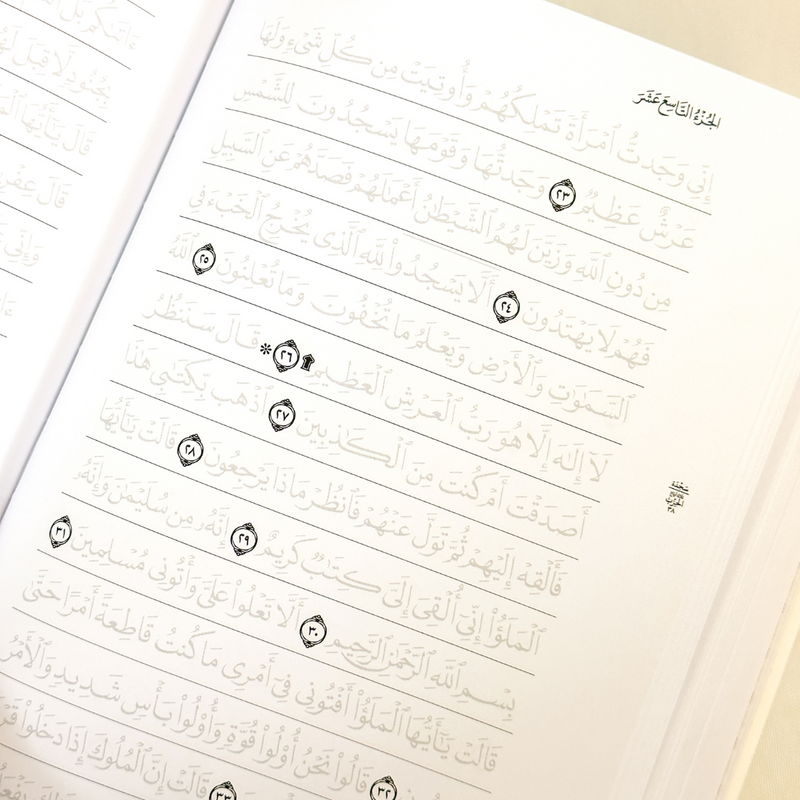 الجُزْءُ التَّاسِعَ عَشَرَ
إِنِّى وَجَدتُّ ٱمْرَأَةً تَمْلِكُهُمْ وَأُوتِيَتْ مِن كُلِّ شَىْءٍ وَلَهَا
عَرْشٌ عَظِيمٌ ٢٣ وَجَدتُّهَا وَقَوْمَهَا يَسْجُدُونَ لِلشَّمْسِ
مِن دُونِ ٱللَّهِ وَزَيَّنَ لَهُمُ ٱلشَّيْطَٰنُ أَعْمَٰلَهُمْ فَصَدَّهُمْ عَنِ ٱلسَّبِيلِ
فَهُمْ لَا يَهْتَدُونَ ٢٤ أَلَّا يَسْجُدُوا۟ لِلَّهِ ٱلَّذِى يُخْرِجُ ٱلْخَبْءَ فِى
ٱلسَّمَٰوَٰتِ وَٱلْأَرْضِ وَيَعْلَمُ مَا تُخْفُونَ وَمَا تُعْلِنُونَ ٢٥ ٱللَّهُ
لَآ إِلَٰهَ إِلَّا هُوَ رَبُّ ٱلْعَرْشِ ٱلْعَظِيمِ ۩ ٢٦ * قَالَ سَنَنظُرُ
أَصَدَقْتَ أَمْ كُنتَ مِنَ ٱلْكَٰذِبِينَ ٢٧ ٱذْهَب بِّكِتَٰبِى هَٰذَا
فَأَلْقِهْ إِلَيْهِمْ ثُمَّ تَوَلَّ عَنْهُمْ فَٱنظُرْ مَاذَا يَرْجِعُونَ ٢٨ قَالَتْ يَٰٓأَيُّهَا
ٱلْمَلَؤُا۟ إِنِّىٓ أُلْقِىَ إِلَىَّ كِتَٰبٌ كَرِيمٌ ٢٩ إِنَّهُۥ مِن سُلَيْمَٰنَ وَإِنَّهُۥ
بِسْمِ ٱللَّهِ ٱلرَّحْمَٰنِ ٱلرَّحِيمِ ٣٠ أَلَّا تَعْلُوا۟ عَلَىَّ وَأْتُونِى مُسْلِمِينَ ٣١
قَالَتْ يَٰٓأَيُّهَا ٱلْمَلَؤُا۟ أَفْتُونِى فِىٓ أَمْرِى مَا كُنتُ قَاطِعَةً أَمْرًا حَتَّىٰ
٣٢ قَالُوا۟ نَحْنُ أُو۟لُوا۟ قُوَّةٍ وَأُو۟لُوا۟ بَأْسٍ شَدِيدٍ وَٱلْأَمْرُ
٣٣ قَالَتْ إِنَّ ٱلْمُلُوكَ إِذَا دَخَلُوا۟
سَجْدَة
الحِزْب
٣٨
بِجُنُودٍ لَّا قِبَلَ لَهُم
قَالَ يَٰٓأَيُّهَا
قَالَ
وَإِنِّى